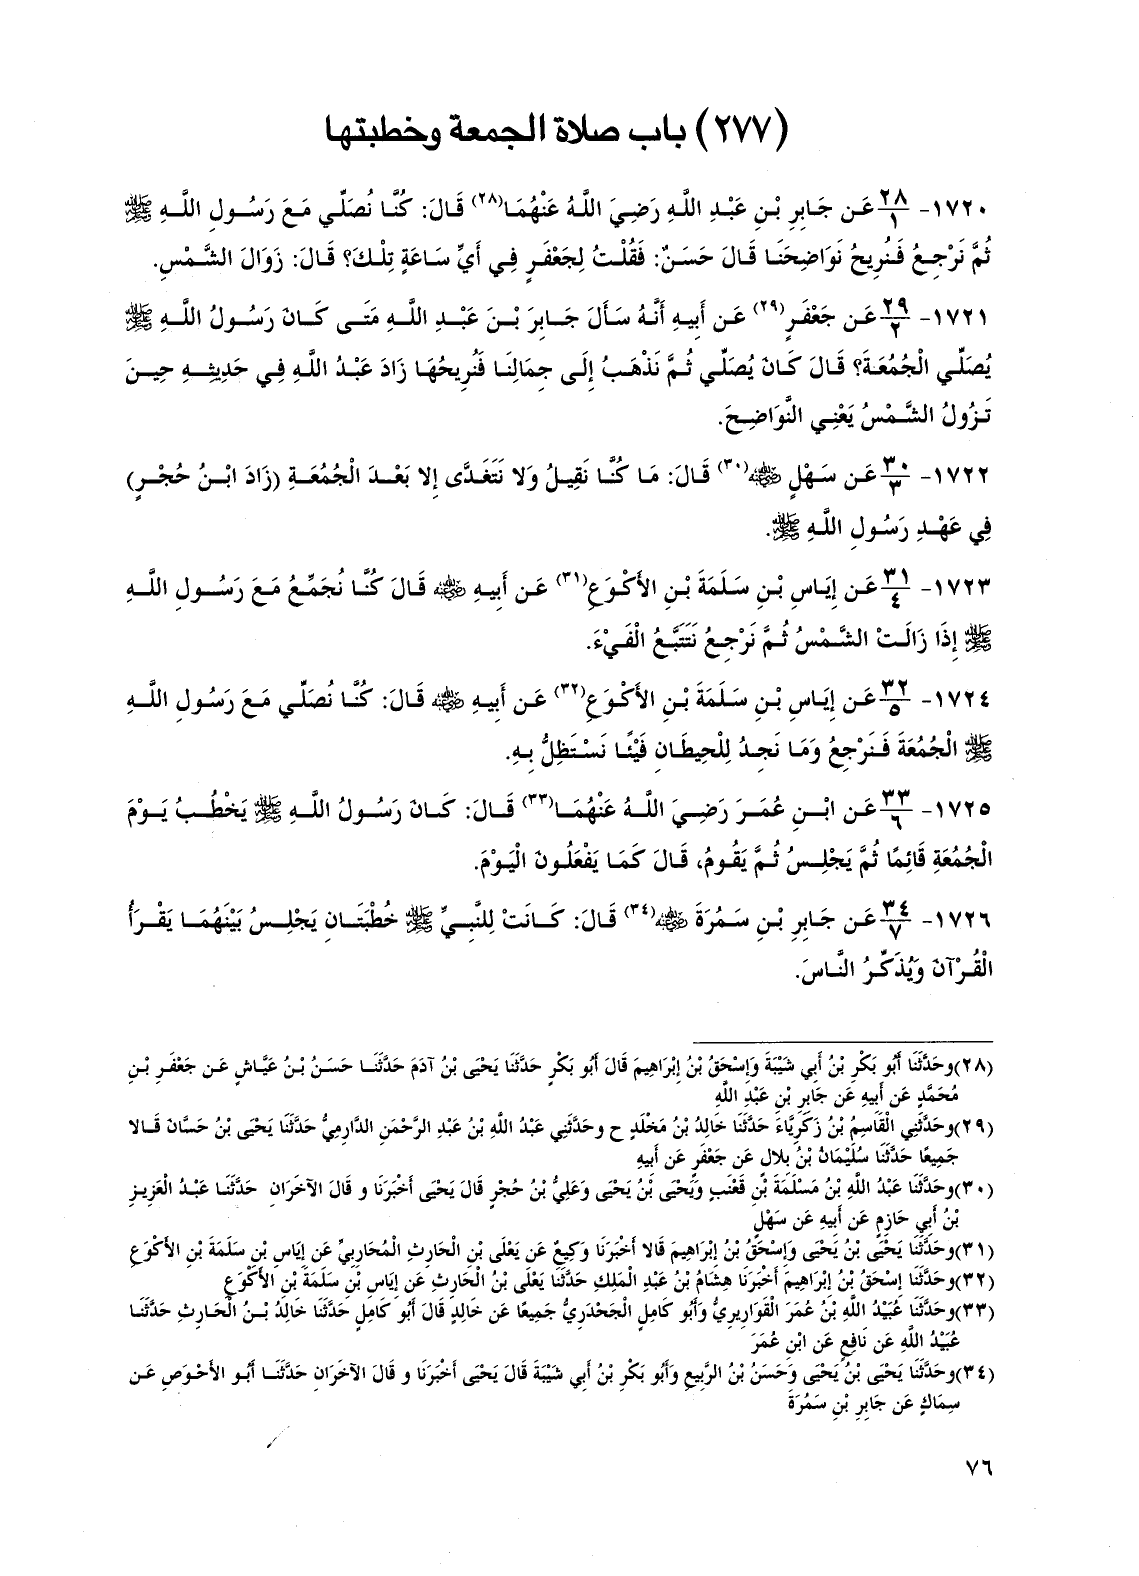 (٢٧٧) باب صلاة الجمعة وخطبتها
١٧٢٠- ٢٨/١ عَن جَابِرِ بْنِ عَبْدِ اللَّهِ رَضِيَ اللَّهُ عَنْهُمَا(٢٨) قَالَ: كُنَّا نُصَلِّي مَعَ رَسُولِ اللَّهِ ﷺ
ثُمَّ نَرْجِعُ فَنُرِيحُ نَوَاضِحَنَا قَالَ حَسَنٌ: فَقُلْتُ لِجَعْفَرٍ فِي أَيِّ سَاعَةٍ تِلْكَ؟ قَالَ: زَوَالَ الشَّمْسِ.
١٧٢١- ٢٩/٢ عَن جَعْفَرٍ(٢٩) عَن أَبِيهِ أَنَّهُ سَأَلَ جَابِرَ بْنَ عَبْدِ اللَّهِ مَتَى كَانَ رَسُولُ اللَّهِ ﷺ
يُصَلِّي الْجُمُعَةَ؟ قَالَ كَانَ يُصَلِّي ثُمَّ نَذْهَبُ إِلَى جِمَالِنَا فَنُرِيحُهَا زَادَ عَبْدُ اللَّهِ فِي حَدِيثِهِ حِينَ
تَزُولُ الشَّمْسُ يَعْنِي النَّوَاضِحَ.
١٧٢٢- ٣٠/٣ عَن سَهْلٍ ﷺ(٣٠) قَالَ: مَا كُنَّا نَقِيلُ وَلا نَتَغَدَّى إِلا بَعْدَ الْجُمُعَةِ (زَادَ ابْنُ حُجْرٍ)
فِي عَهْدِ رَسُولِ اللَّهِ ﷺ.
١٧٢٣- ٣١/٤ عَن إِيَاسِ بْنِ سَلَمَةَ بْنِ الأَكْوَعِ(٣١) عَن أَبِيهِ ﷺ قَالَ كُنَّا نُجَمِّعُ مَعَ رَسُولِ اللَّهِ
ﷺ إِذَا زَالَتْ الشَّمْسُ ثُمَّ نَرْجِعُ نَتَتَبَّعُ الْفَيْءَ.
١٧٢٤- ٣٢/٥ عَن إِيَاسِ بْنِ سَلَمَةَ بْنِ الأَكْوَعِ(٣٢) عَن أَبِيهِ ﷺ قَالَ: كُنَّا نُصَلِّي مَعَ رَسُولِ اللَّهِ
ﷺ الْجُمُعَةَ فَنَرْجِعُ وَمَا نَجِدُ لِلْحِيطَانِ فَيْئًا نَسْتَظِلُّ بِهِ.
١٧٢٥- ٣٣/٦ عَن ابْنِ عُمَرَ رَضِيَ اللَّهُ عَنْهُمَا(٣٣) قَالَ: كَانَ رَسُولُ اللَّهِ ﷺ يَخْطُبُ يَوْمَ
الْجُمُعَةِ قَائِمًا ثُمَّ يَجْلِسُ ثُمَّ يَقُومُ، قَالَ كَمَا يَفْعَلُونَ الْيَوْمَ.
١٧٢٦- ٣٤/٧ عَن جَابِرِ بْنِ سَمُرَةَ ﷺ(٣٤) قَالَ: كَانَتْ لِلنَّبِيِّ ﷺ خُطْبَتَانِ يَجْلِسُ بَيْنَهُمَا يَقْرَأُ
الْقُرْآنَ وَيُذَكِّرُ النَّاسَ.
(٢٨) وحَدَّثَنَا أَبُو بَكْرِ بْنُ أَبِي شَيْبَةَ وَإِسْحَقُ بْنُ إِبْرَاهِيمَ قَالَ أَبُو بَكْرٍ حَدَّثَنَا يَحْيَى بْنُ آدَمَ حَدَّثَنَا حَسَنُ بْنُ عَيَّاشٍ عَن جَعْفَرِ بْنِ
مُحَمَّدٍ عَن أَبِيهِ عَن جَابِرِ بْنِ عَبْدِ اللَّهِ
(٢٩) وحَدَّثَنِي الْقَاسِمُ بْنُ زَكَرِيَّاءَ حَدَّثَنَا خَالِدُ بْنُ مَخْلَدٍ ح وحَدَّثَنِي عَبْدُ اللَّهِ بْنُ عَبْدِ الرَّحْمَنِ الدَّارِمِيُّ حَدَّثَنَا يَحْيَى بْنُ حَسَّانَ قَالا
جَمِيعًا حَدَّثَنَا سُلَيْمَانُ بْنُ بِلالٍ عَن جَعْفَرٍ عَن أَبِيهِ
(٣٠) وحَدَّثَنَا عَبْدُ اللَّهِ بْنُ مَسْلَمَةَ بْنِ قَعْنَبٍ وَيَحْيَى بْنُ يَحْيَى وَعَلِيُّ بْنُ حُجْرٍ قَالَ يَحْيَى أَخْبَرَنَا و قَالَ الآخَرَانِ حَدَّثَنَا عَبْدُ الْعَزِيزِ
بْنُ أَبِي حَازِمٍ عَن أَبِيهِ عَن سَهْلٍ
(٣١) وحَدَّثَنَا يَحْيَى بْنُ يَحْيَى وَإِسْحَقُ بْنُ إِبْرَاهِيمَ قَالا أَخْبَرَنَا وَكِيعٌ عَن يَعْلَى بْنِ الْحَارِثِ الْمُحَارِبِيِّ عَن إِيَاسِ بْنِ سَلَمَةَ بْنِ الأَكْوَعِ
(٣٢) وحَدَّثَنَا إِسْحَقُ بْنُ إِبْرَاهِيمَ أَخْبَرَنَا هِشَامُ بْنُ عَبْدِ الْمَلِكِ حَدَّثَنَا يَعْلَى بْنُ الْحَارِثِ عَن إِيَاسِ بْنِ سَلَمَةَ بْنِ الأَكْوَعِ
(٣٣) وحَدَّثَنَا عُبَيْدُ اللَّهِ بْنُ عُمَرَ الْقَوَارِيرِيُّ وَأَبُو كَامِلٍ الْجَحْدَرِيُّ جَمِيعًا عَن خَالِدٍ قَالَ أَبُو كَامِلٍ حَدَّثَنَا خَالِدُ بْنُ الْحَارِثِ حَدَّثَنَا
عُبَيْدُ اللَّهِ عَن نَافِعٍ عَن ابْنِ عُمَرَ
(٣٤) وحَدَّثَنَا يَحْيَى بْنُ يَحْيَى وَحَسَنُ بْنُ الرَّبِيعِ وَأَبُو بَكْرِ بْنُ أَبِي شَيْبَةَ قَالَ يَحْيَى أَخْبَرَنَا و قَالَ الآخَرَانِ حَدَّثَنَا أَبُو الأَحْوَصِ عَن
سِمَاكٍ عَن جَابِرِ بْنِ سَمُرَةَ
٧٦